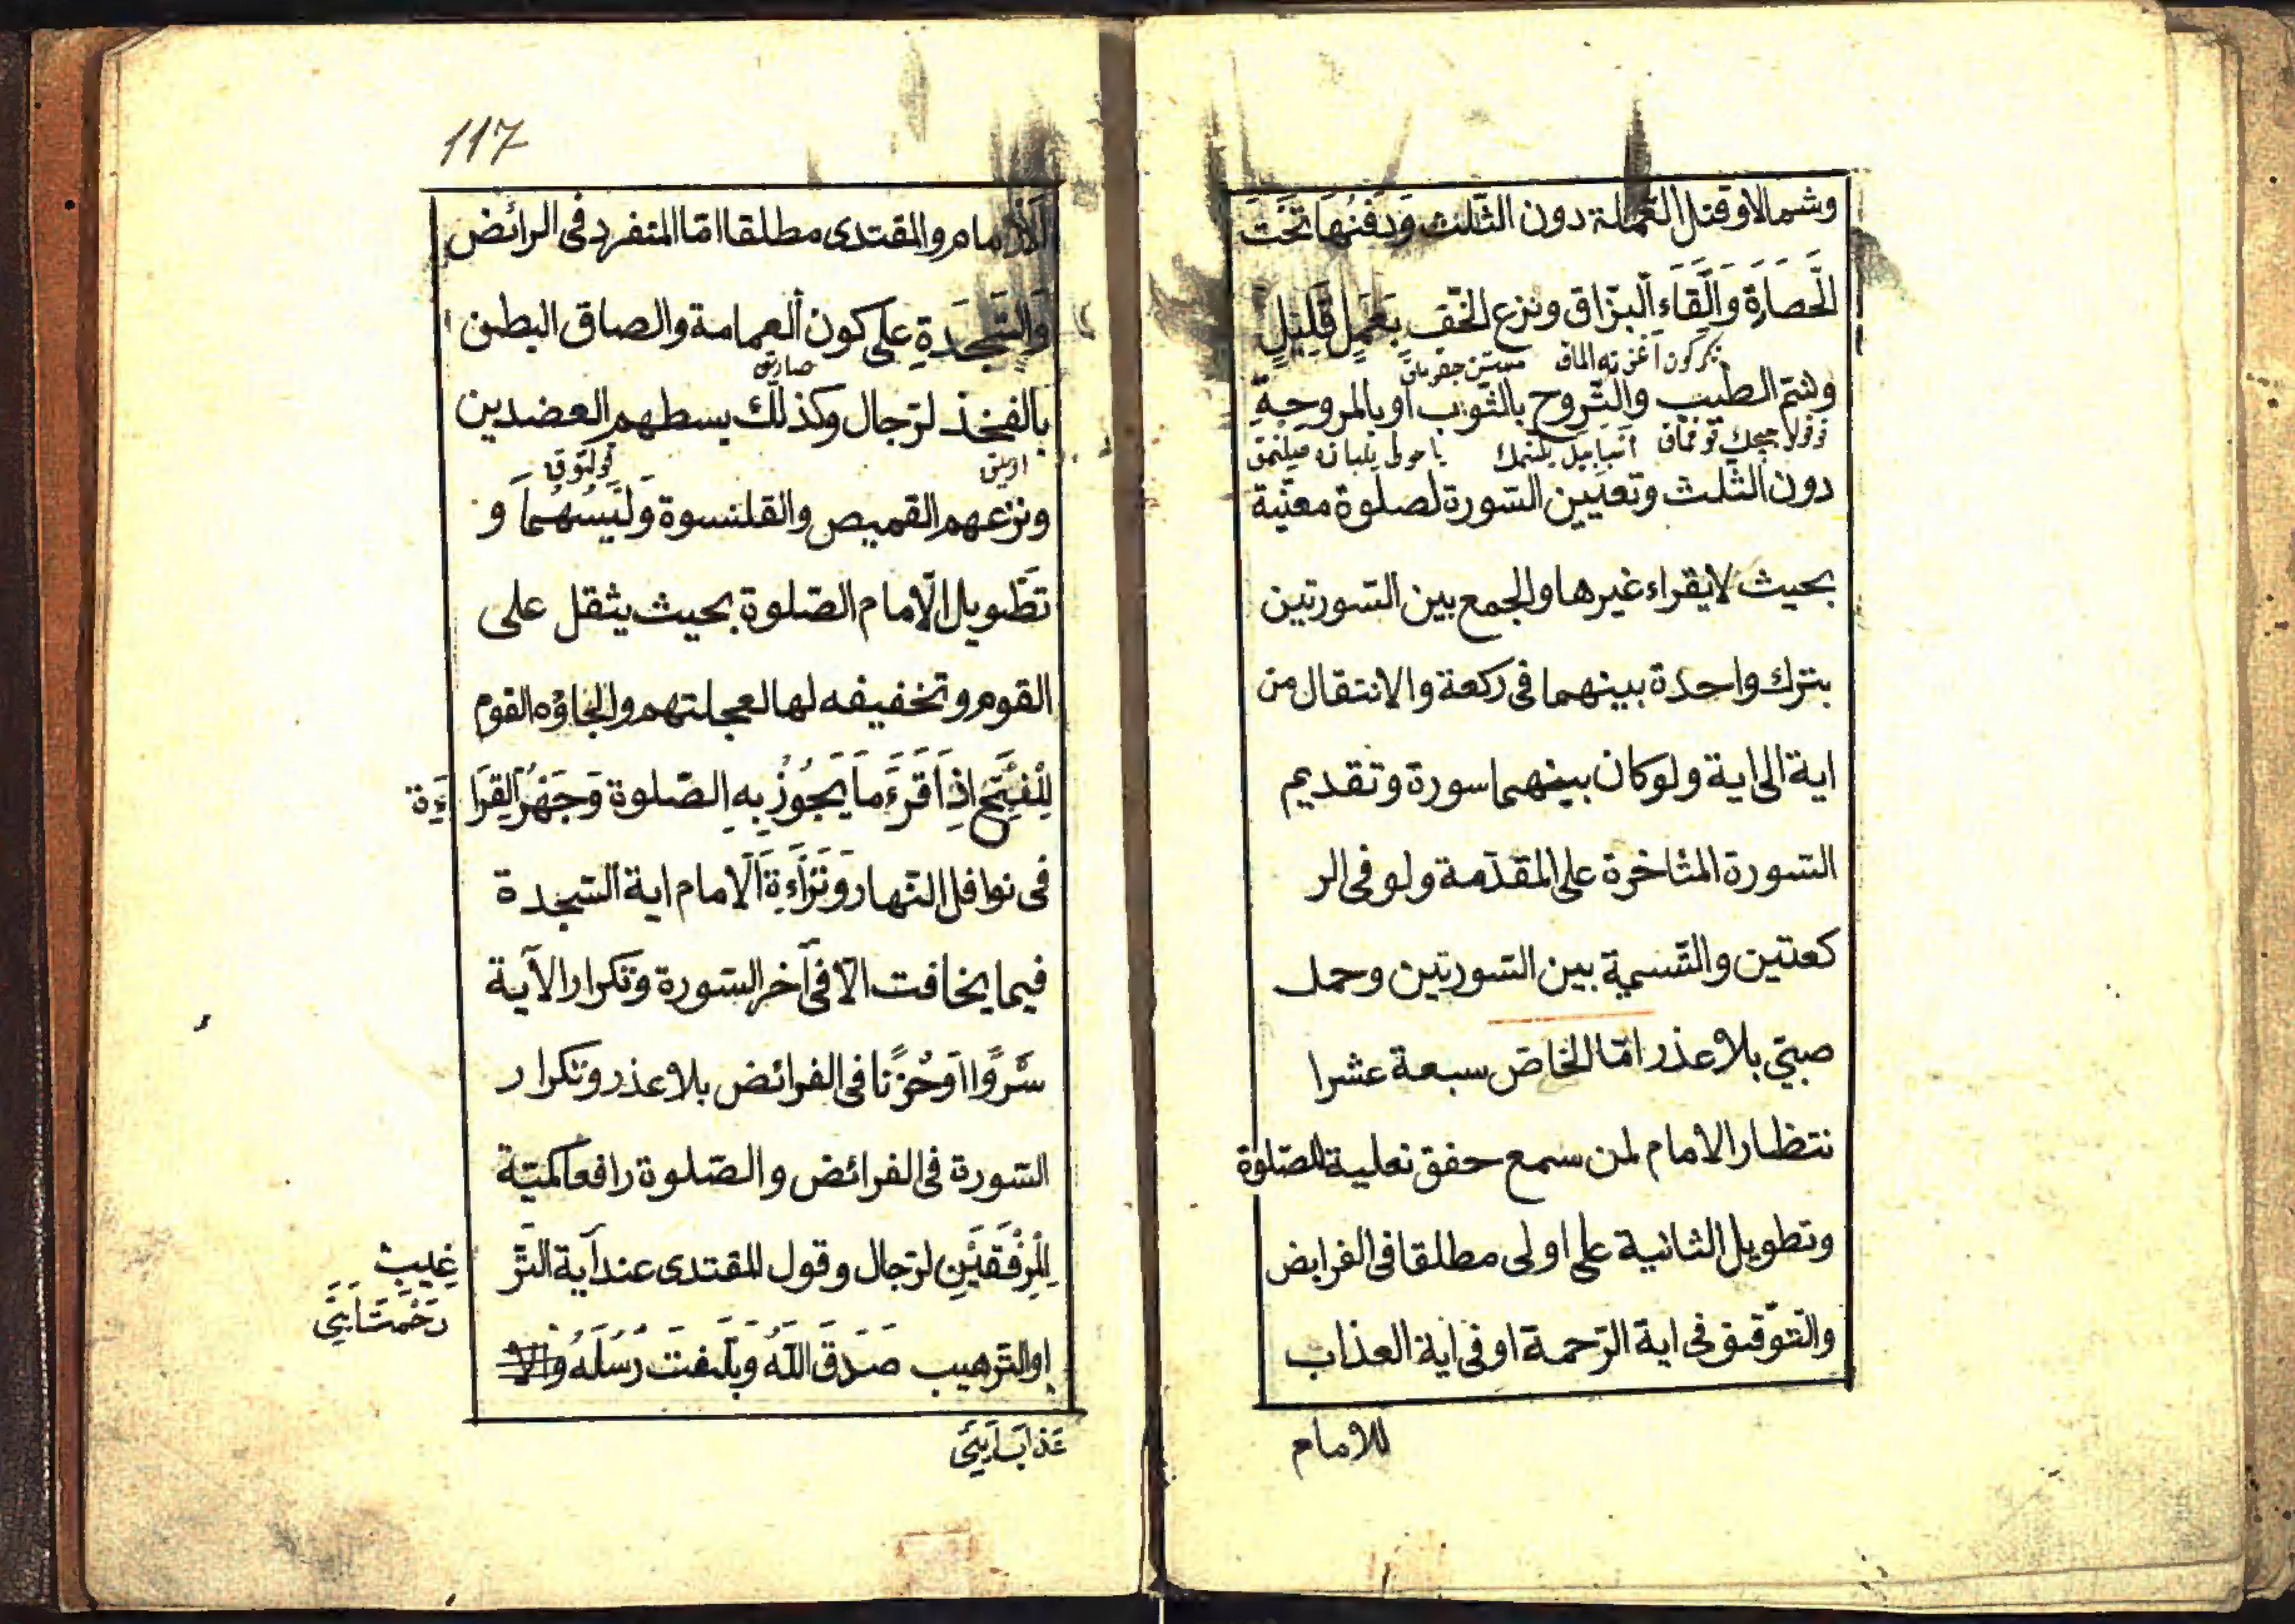 وشمالا وقتل القملة دون الثلث وَدَفْنُهَا تَحْتَ
الْحَصَارَةِ وَاِلْقَاءِ الْبزَاق ونزع الخف بِعَمَلٍ قَلِيلٍ
وشم الطيب والتروح بالثوب او بالمروحة
دون الثلث وتعيين السورة لصلوة معنية
بحيث لا يقراء غيرها والجمع بين السورتين
بترك واحدة بينهما فى ركعة والانتقال من
اية الى اية ولو كان بينهما سورة وتقديم
السورة المتاخرة على المقدمة ولو فى الر
كعتين والتسمية بين السورتين وحمل
صبىّ بلا عذر امّا الخاصّ سبعة عشر ا
نتظار الامام لمن سمع حفق نعلية للصلوة
وتطويل الثانية على اولى مطلقا فى الفرايض
والتوقيق فى اية الرّحمة او فى اية العذاب
للامام
117
الامام والمقتدى مطلقا امّا المتفرد فى الرائض
وَالسَّجْدَةِ على كون العمامة والصاق البطن
صارتق
بالفخذ لرّجال وكذلك بسطهم العضدين
ونزعهم القميص والقلنسوة وَلَبْسُهُمَا و
تطويل الامام الصّلوة بحيث يثقل على
القوم وتخفيفه لها لعجلتهم والجاؤه القوم
لِلْفَتْحِ اِذَا قَرَءَ مَا يَجُوزُ بِهِ الصّلوة وَجَهْرُ الْقِرَاءَةِ
فى نوافل النّهار وَقِرَاءَةِ الامام اية السّجدة
فيما يخافت الّا فى آخر السورة وتكرار الآية
سُرُورًا اَوْ حُزْنًا فى الفرائض بلا عذر وتكرار
السّورة فى الفرائض والصّلوة رافعا كميّة
لِلْمِرْفَقَيْنِ لرّجال وقول المقتدى عند آية التّر
غيب
رَحْمَتْ اَيَتِى
او الترهيب صَدَقَ اللّٰهُ وَبَلَّغَتْ رُسُلُهُ والا
عَذَابْ اَيَتِى